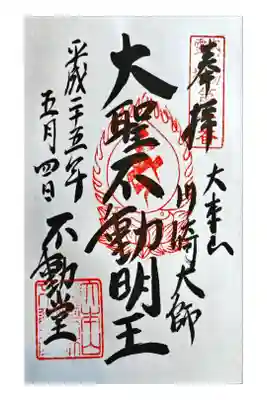 奉拝
大本山
川崎大師
大聖不動明王
不動堂
平成二十五年
五月四日